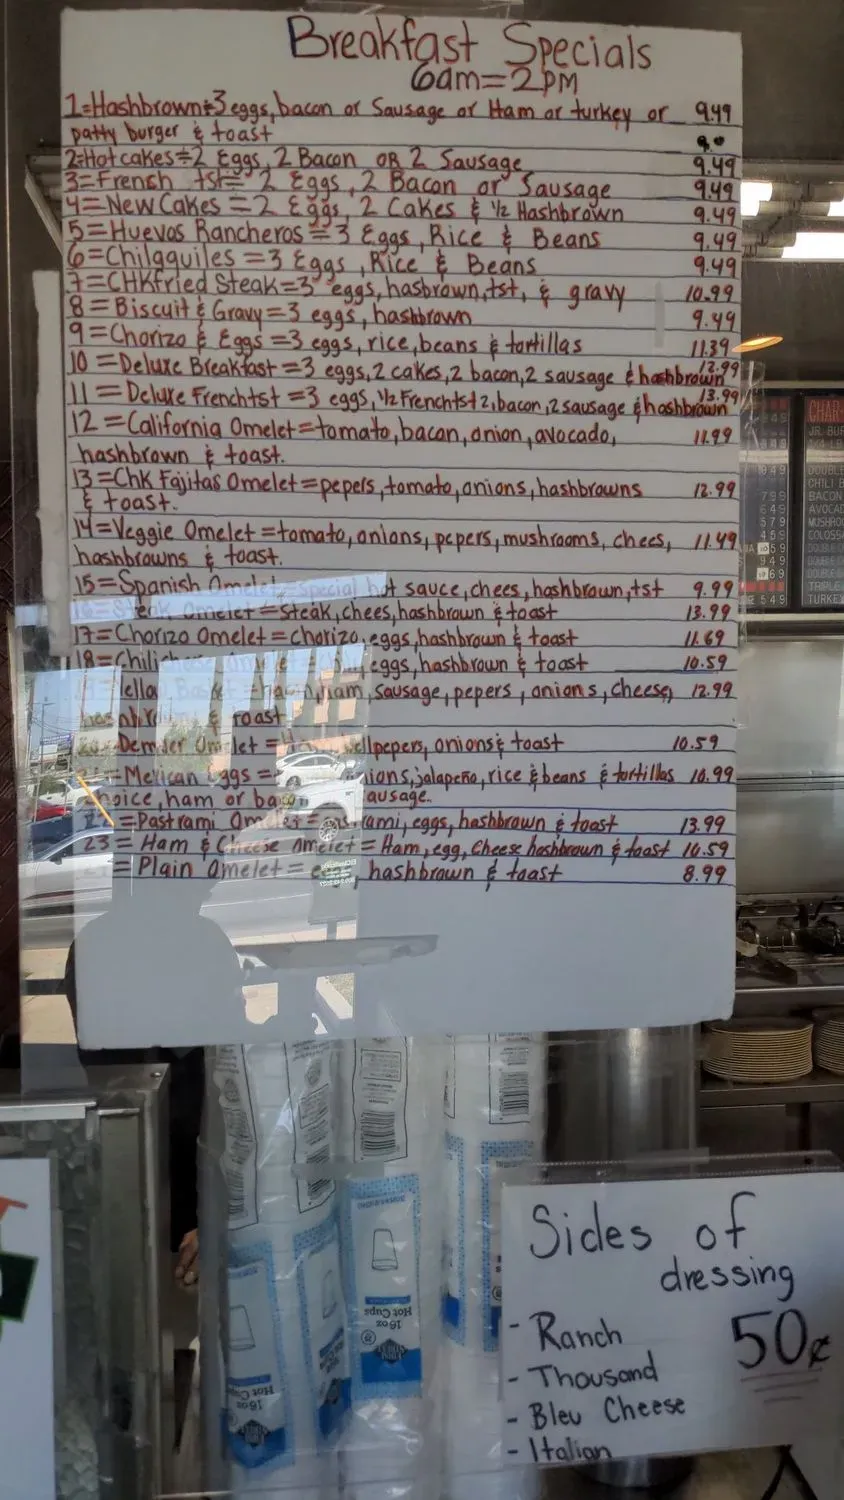 Breakfast Specials
6am=2PM
1=Hashbrown=3 eggs, bacon or Sausage or Ham or turkey or 9.49
patty burger & toast
2=Hot cakes=2 Eggs, 2 Bacon OR 2 Sausage 9.49
3=French tst= 2 Eggs, 2 Bacon or Sausage 9.49
4=New Cakes =2 Eggs, 2 Cakes & 1/2 Hashbrown 9.49
5=Huevos Rancheros=3 Eggs, Rice & Beans 9.49
6=Chilqquiles=3 Eggs, Rice & Beans 9.49
7=CHKfried Steak=3 eggs, hasbrown, tst, & gravy 10.99
8=Biscuit & Gravy=3 eggs, hashbrown 9.49
9=Chorizo & Eggs =3 eggs, rice, beans & tortillas 11.39
10=Deluxe Breakfast=3 eggs, 2 cakes, 2 bacon, 2 sausage & hashbrown 12.99
11=Deluxe Frenchtst=3 eggs, 1/2 Frenchtst 2, bacon, 2 sausage & hashbrown 13.99
12=California Omelet=tomato, bacon, onion, avocado, 11.99
hashbrown & toast.
13=Chk Fajitas Omelet=pepers, tomato, onions, hashbrowns 12.99
& toast.
14=Veggie Omelet=tomato, onions, pepers, mushrooms, chees, 11.49
hashbrowns & toast.
15=Spanish Omelet=special hot sauce, chees, hashbrown, tst 9.99
16=Steak Omelet=steak, chees, hashbrown & toast 13.99
17=Chorizo Omelet=chorizo, eggs, hashbrown & toast 11.69
18=Chili eggs, hashbrown & toast 10.59
ham, sausage, pepers, onions, cheese, 12.99
& toast
Omelet= bellpepers, onions & toast 10.59
=Mexican Eggs= onions, jalapeño, rice & beans & tortillas 10.99
choice, ham or bacon sausage.
22=Pastrami Omelet=pastrami, eggs, hashbrown & toast 13.99
23= Ham & Cheese omelet= Ham, egg, Cheese hashbrown & toast 10.59
= Plain Omelet= eggs, hashbrown & toast 8.99
CHAR-
JR. BUR
DOUBLE
CHILI B
BACON
AVOCAD
MUSHROO
COLOSS
TRIPLE
TURKEY
16 oz
Hot Cups
16 oz
Hot Cups
Sides of
dressing
50¢
- Ranch
- Thousand
- Bleu Cheese
- Italian